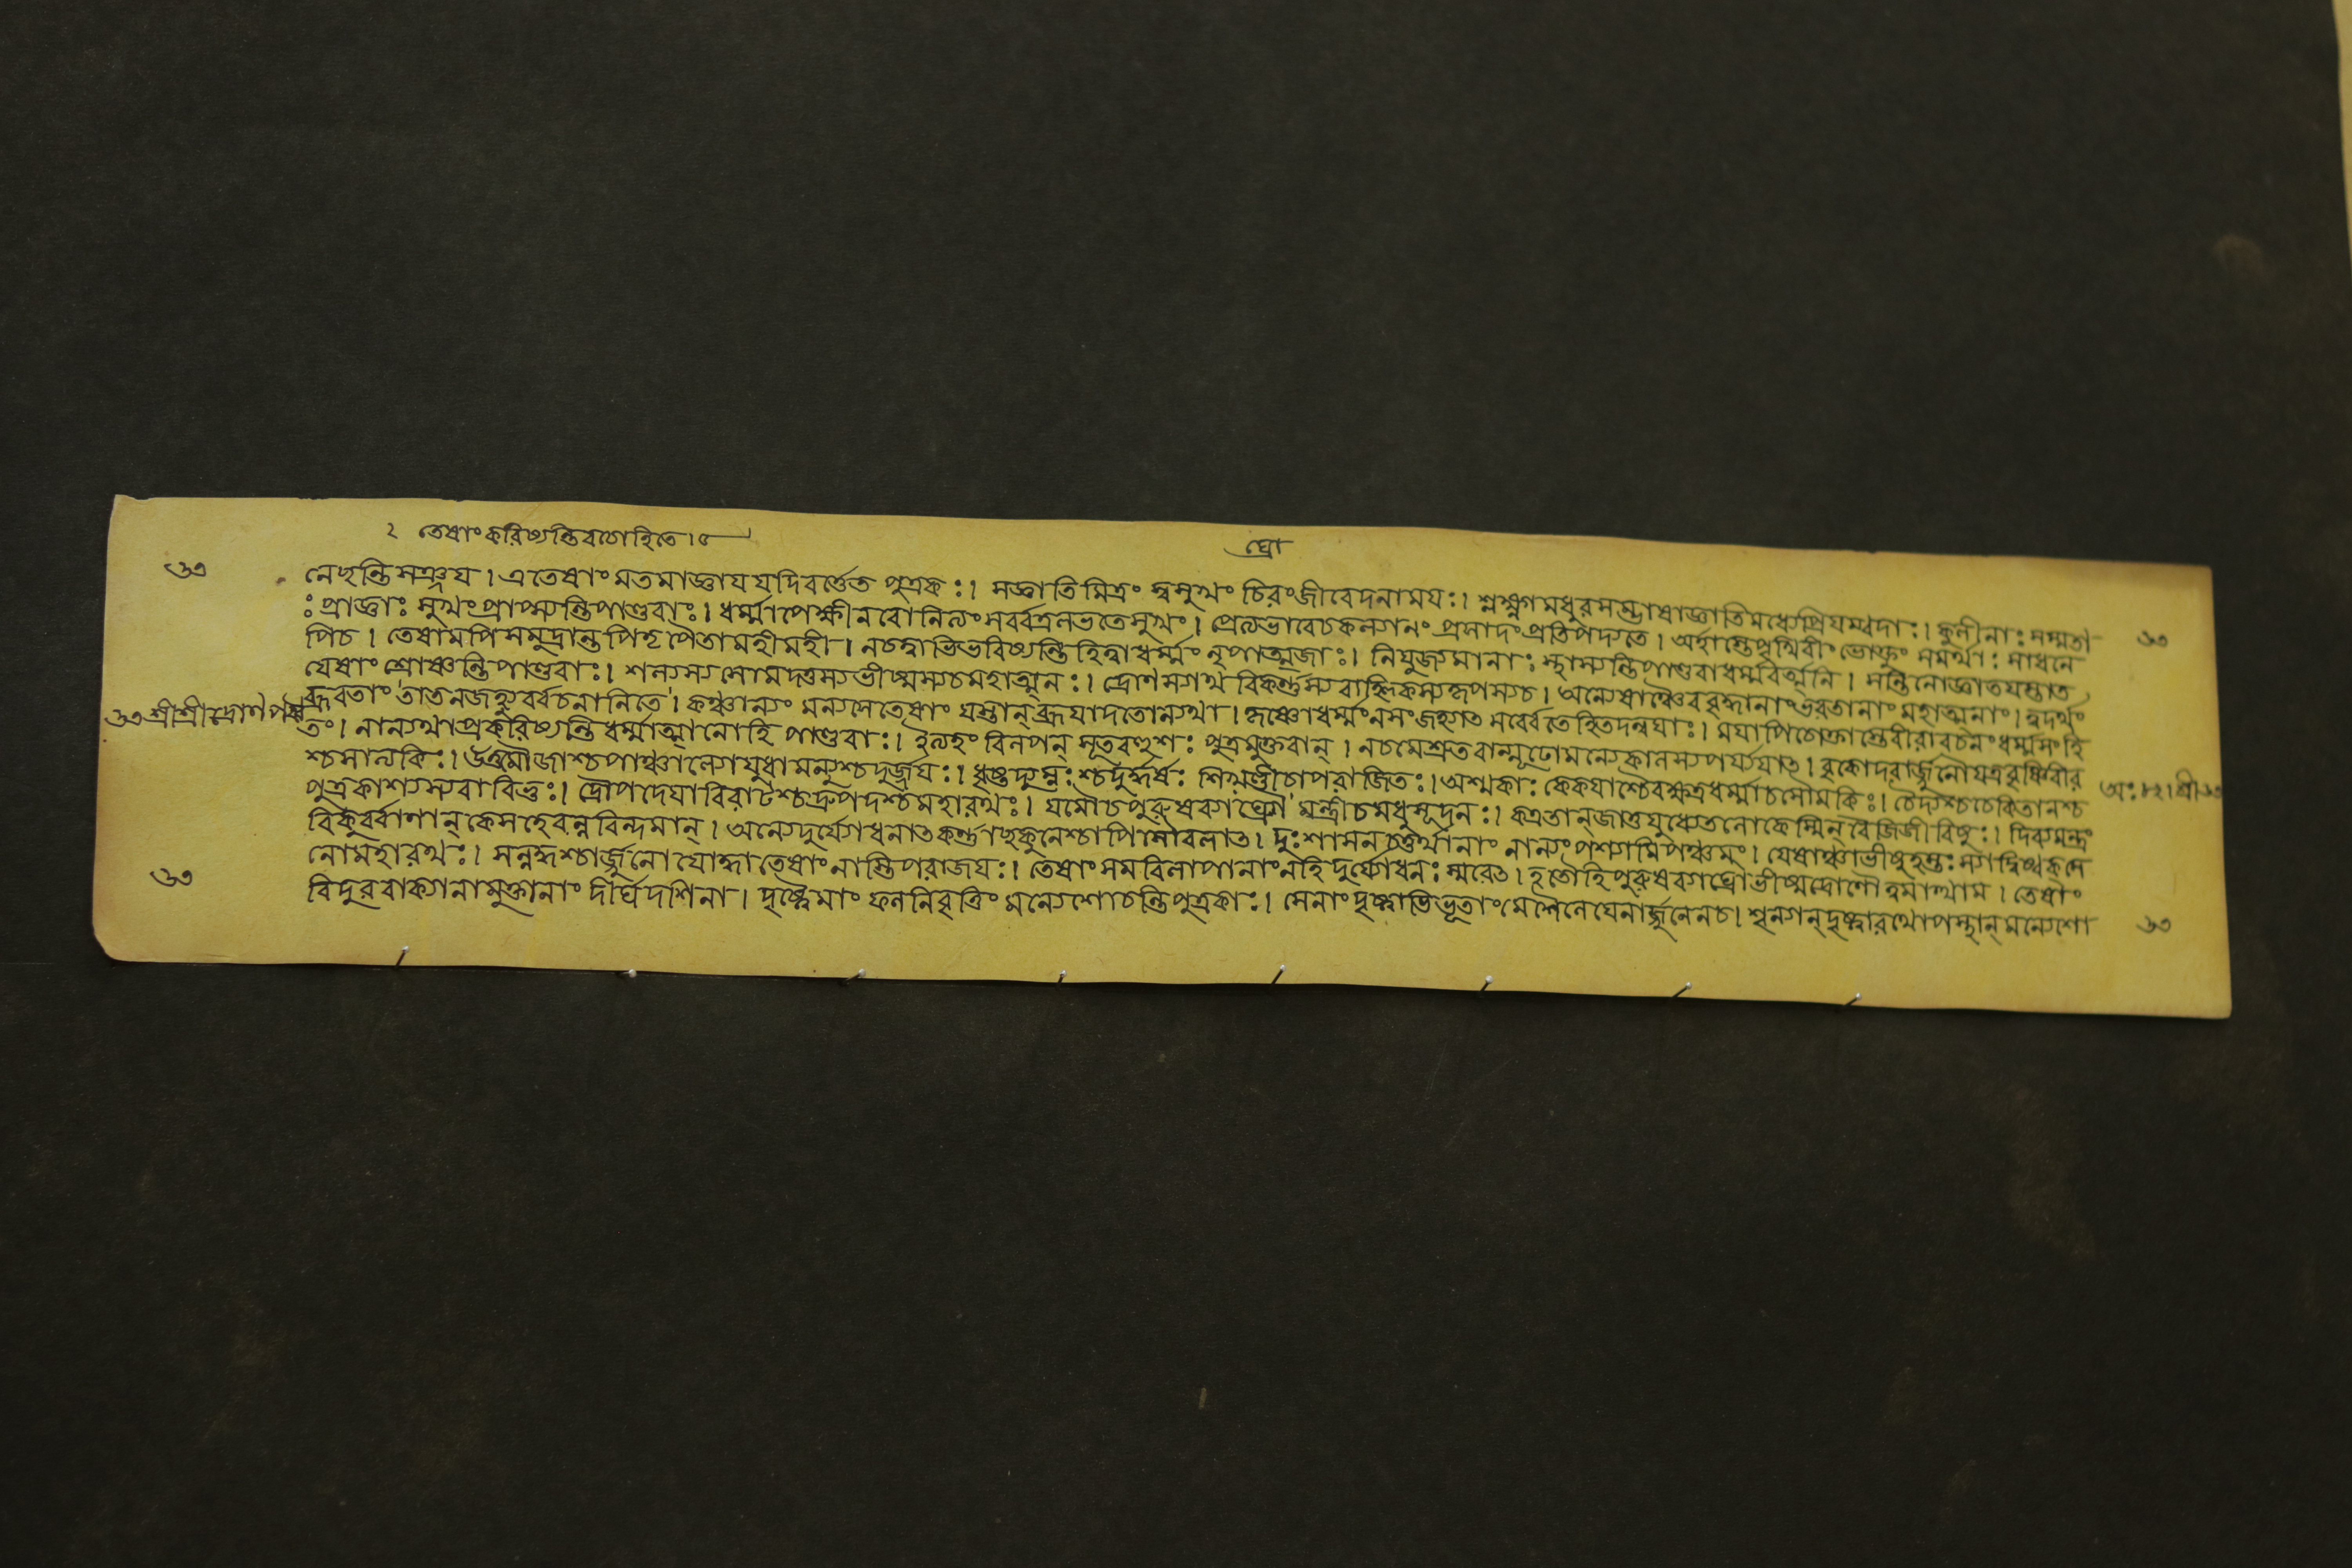 ২ তেষাং করিষ্যন্তি বচোহিতে । ৫
ঘ্রো
৬৩ নেছন্তি সঞ্জয । এতেষাং মতমাজ্ঞায যদি বর্ত্তেত পুত্রকঃ । সজ্ঞাতি মিত্রং স্বসুখং চিরংজীবেদনাময়ঃ । শ্লক্ষ্ণগমধুরসম্ভাষাজ্ঞাতিমধ্যেপ্রিযম্বদাঃ । কুলীনাঃ সম্মতা ৬৩
ঃ প্রাজ্ঞাঃ সুখং প্রাপ্স্যন্তি পাণ্ডবাঃ । ধর্ম্মাপেক্ষীনরো নিত্যং সর্ব্বত্রলভতেসুখং । প্রেত্যভাবেচকল্যানং প্রসাদং প্রতিপদ্যতে । অর্হাস্তেপৃথিবীং ভোক্তুং সমর্থাঃ সাধনে
পিচ । তেষামপি সমুদ্রান্ত পিতৃপৈতামহীমহী । নচত্বাভিভবিষ্যন্তি হিত্বাধর্ম্মং নৃপাত্মজাঃ । নিযুজ্যমানাঃ স্থাস্যন্তি পাণ্ডবাধর্ম্মবর্ত্মনি । সন্তিনোজ্ঞাতযস্তাত
যেষাং শ্রোষ্যন্তি পাণ্ডবাঃ । শল্যস্য সোমদত্তস্য ভীষ্মস্যচমহাত্মনঃ । দ্রোণস্যাথ বিকর্ণস্য বাহ্লিকস্যকৃপস্যচ । অন্যেষাঞ্চৈব বৃদ্ধানাং ভরতানাং মহাত্মনাং । ত্বদর্থং
ব্রুবতাং তাতনজহ্যুর্ব্বচনানিতে । কঞ্চান্যং মন্যসেতেষাং যস্তান্ ব্রুযাদতোন্যথা । কৃষ্ণোধর্ম্মংনসংজহ্যাৎ সর্ব্বেতেহিতদন্বযাঃ । মযাপিচোক্তাস্তেবীরাবচনংধর্ম্মসংহি
৬৩ শ্রীশ্রীদ্রোণপর্ব্ব তং । নান্যথাপ্রকরিষ্যন্তি ধর্ম্মাত্মানোহি পাণ্ডবাঃ । ইত্যহং বিলপন্ সূতবহুশঃ পুত্রমুক্তবান্ । নচমেশ্রুতবান্মূঢোমন্যেকালস্যপর্য্যযাৎ । বৃকোদরার্জ্জুনৌযত্রবৃষ্ণিবীর
শ্চসাত্যকিঃ । উত্তমৌজাশ্চপাঞ্চাল্যোযুধামন্যুশ্চদুর্জ্জযঃ । ধৃষ্টদ্যুম্নঃশ্চদুর্দ্ধর্ষঃ শিখণ্ডীচাপরাজিতঃ । অশ্মকাঃ কেকযাশ্চৈবক্ষত্রধর্ম্মাচসৌমকিঃ । চৈদ্যশ্চচেকিতানশ্চ অঃ ৮২ । শ্রী ৬৩
পুত্রকাশ্যস্য বাবিভুঃ । দ্রৌপদেযাবিরাটশ্চদ্রুপদশ্চমহারথঃ । যমৌচপুরুষব্যাঘ্রৌ মন্ত্রীচমধুসূদনঃ । কত্রতান্জাতুযুধ্যেতলোকেস্মিন্ বৈজিজীবিষুঃ । দিব্যমস্ত্রং
বিকুর্ব্বাণান্ কেসহেবন্নবিন্দমান্ । অন্যেদুর্যোধনাৎকর্ণাচ্ছকুনেশ্চাপিসৌবলাৎ । দুঃশাসনচতুর্থানাং নান্যংপশ্যামিপঞ্চমং । যেষাঞ্চাভীষুহস্তঃস্যাদ্বিষ্বক্সে
৬৩ নোমহারথঃ । সন্নদ্ধশ্চার্জ্জুনো যোদ্ধাতেষাং নাস্তিপরাজযঃ । তেষাং সমবিলাপানাংনহি দুর্যোধনঃ স্মরেৎ । হতৌহিপুরুষব্যাঘ্রৌভীষ্মদ্রোণৌত্বমাত্থাম । তেষাং
বিদুরবাক্যানামুক্তানাং দীর্ঘদর্শিনা । দৃষ্ট্বেমাং ফলনিবৃত্তিং মন্যেশোচন্তিপুত্রকাঃ । সেনাং দৃষ্ট্বাভিভূতাংমেশৈনেযেনার্জ্জুনেনচ । শূন্যান্দৃষ্ট্বারথোপস্থান্মন্যেশো ৬৩